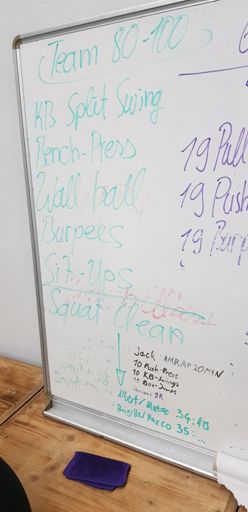 Team 80-100
KB Split Swing
Bench-Press
Wall ball
Burpees
Sit-Ups
Squat Clean
19 Pull
19 Push
19 Burp
Jack AMRAP 20MIN
10 Push-Press
10 KB-Swings
10 Box-Jumps
Albert/ 34:10
35: